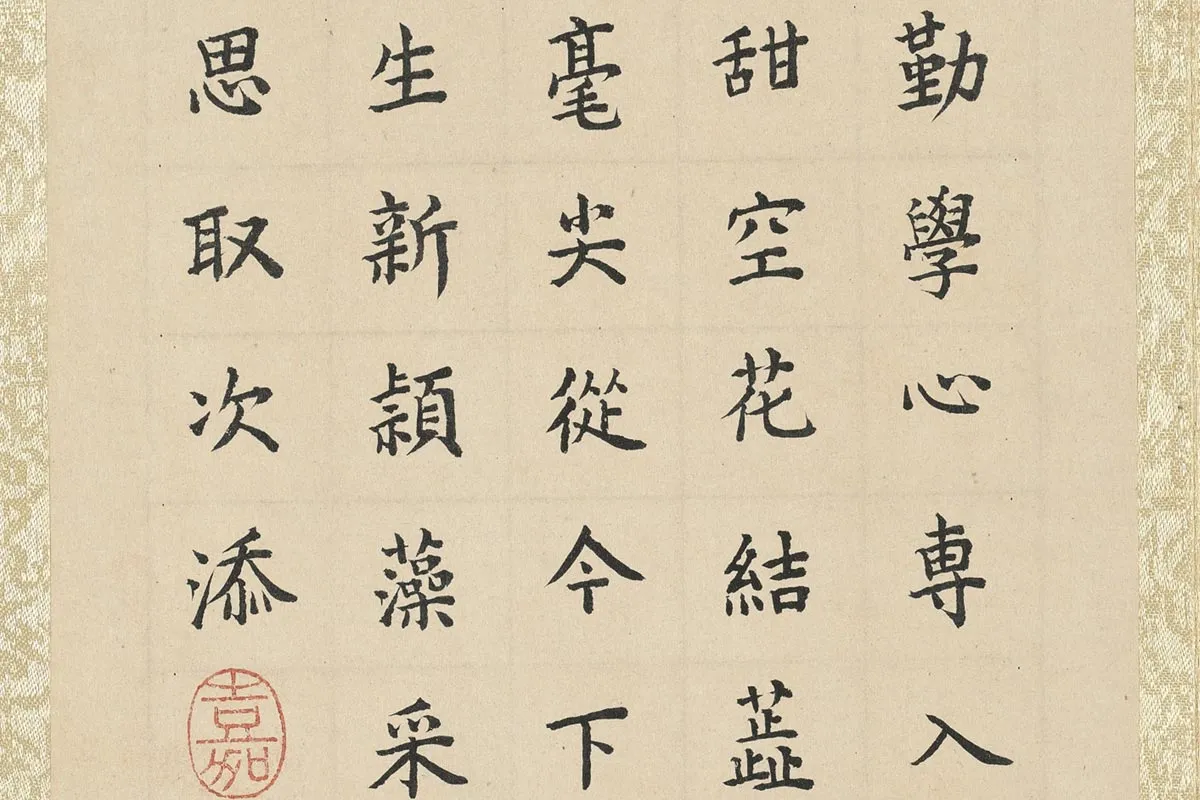 勤學心専入
甜空花結蕋
毫尖從今下
生新頴藻采
思取次添
嘉